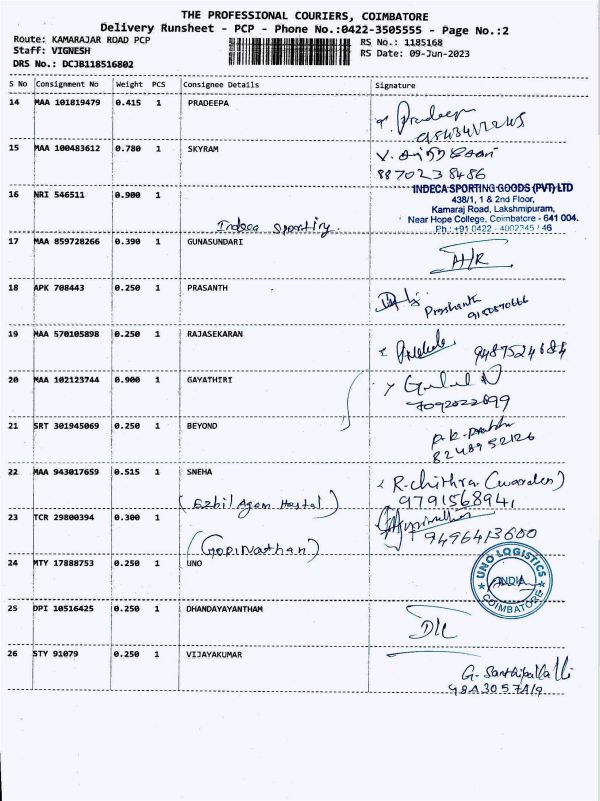 THE PROFESSIONAL COURIERS, COIMBATORE
Delivery Runsheet - PCP - Phone No.:0422-3505555 - Page No.:2
Route: KAMARAJAR ROAD PCP
Staff: VIGNESH
DRS No.: DCJB118516802
RS No.: 1185168
RS Date: 09-Jun-2023
S No Consignment No Weight PCS Consignee Details Signature
14 MAA 101819479 0.415 1 PRADEEPA
Pradeepa
15 MAA 100483612 0.780 1 SKYRAM
8870238486
16 NRI 546511 0.900 1
Indeca Sporting.
INDECA SPORTING GOODS (PVT) LTD
438/1, 1 & 2nd Floor,
Kamaraj Road, Lakshmipuram,
Near Hope College, Coimbatore - 641 004.
Ph.: +91 0422 - 4002345 / 46
17 MAA 859728266 0.390 1 GUNASUNDARI
A/R
18 APK 708443 0.250 1 PRASANTH
Prashanth
9150870666
19 MAA 570105898 0.250 1 RAJASEKARAN
9487524684
20 MAA 102123744 0.900 1 GAYATHIRI
7092022899
21 SRT 301945069 0.250 1 BEYOND
8248952126
22 MAA 943017659 0.515 1 SNEHA
(Ezhil Agam Hostal)
R-chithra (warden)
9791568941
23 TCR 29800394 0.300 1
(Gopinathan)
9496413600
24 MTY 17888753 0.250 1 UNO
UNO LOGISTICS
INDIA
COIMBATORE
25 DPI 10516425 0.250 1 DHANDAYAYANTHAM
D/L
26 STY 91079 0.250 1 VIJAYAKUMAR